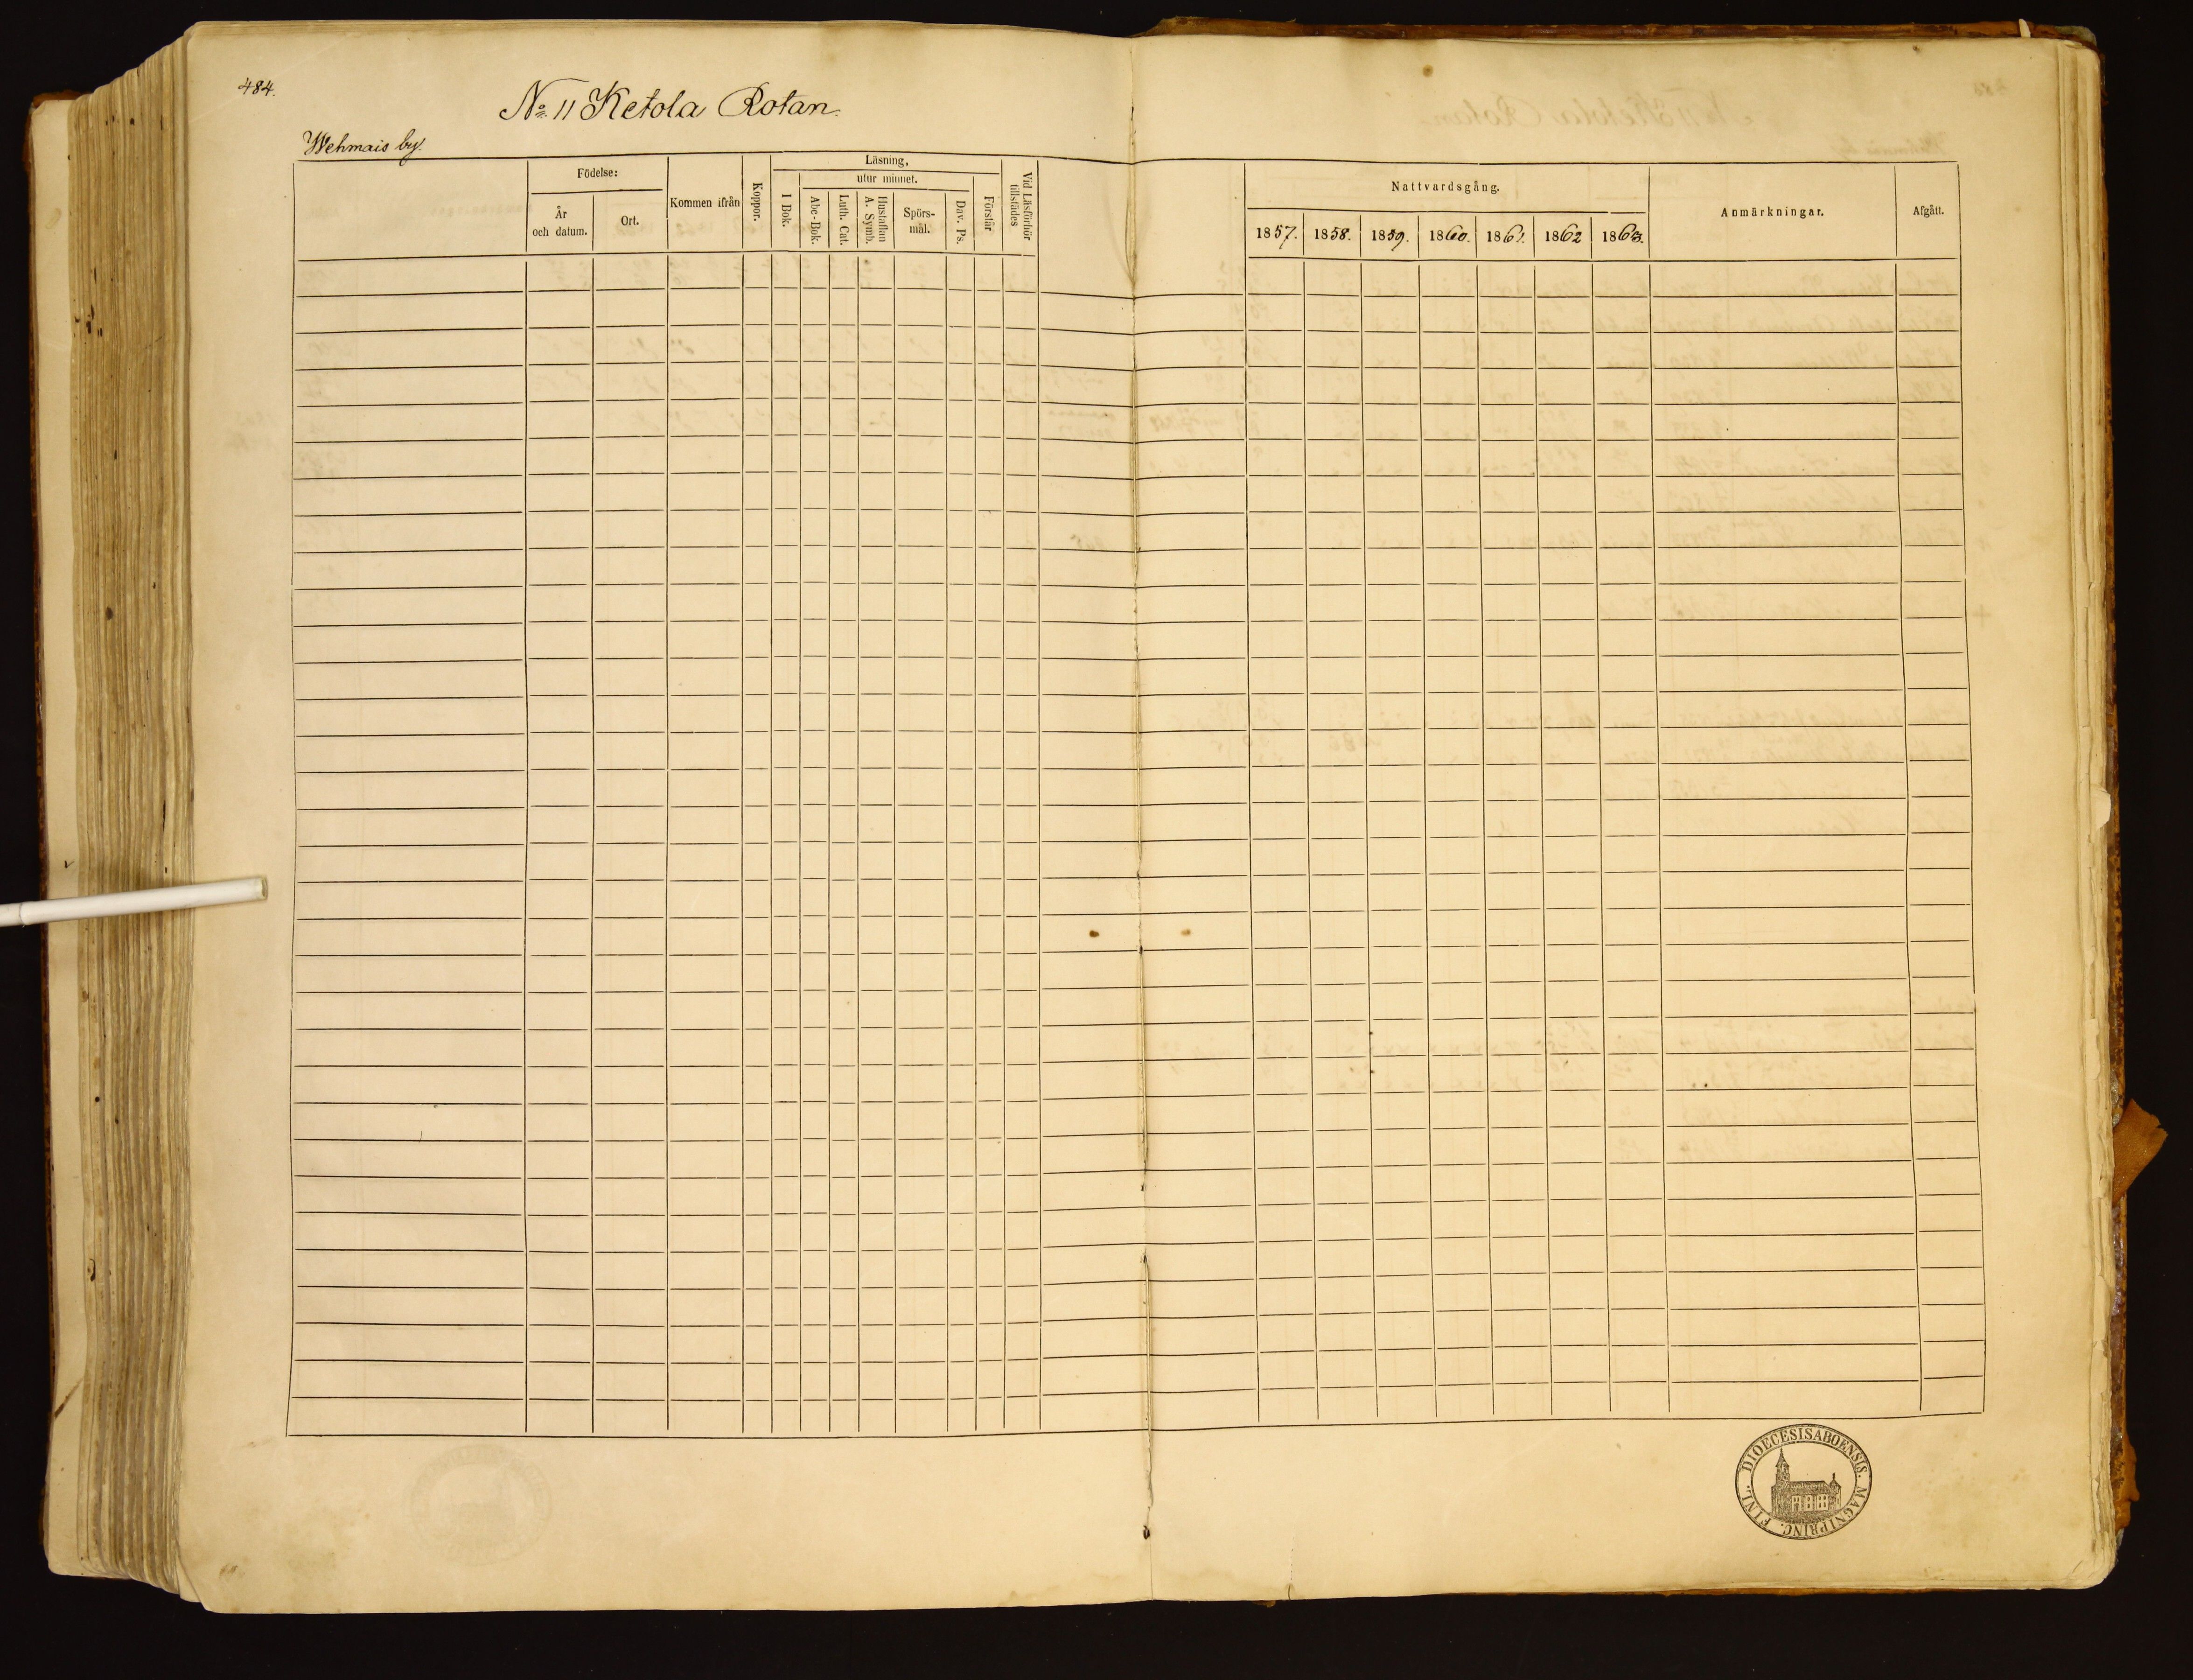 484.
No 11 Ketola Rotan.
Wehmais by.
Födelse:
År och datum.
Ort.
Kommen ifrån
Koppor.
Läsning,
utur minnet.
I Bok.
Abc-Bok.
Luth. Cat.
Hustaflan A. Symb.
Spörs-mål.
Dav. Ps.
Förstår
Vid Läsförhör tillstädes
Nattvardsgång.
1857. 1858. 1859. 1860. 1861. 1862 1863.
Anmärkningar.
Afgått.
DIOECESIS ABOENSIS. MAGNI PRINC. FINL.